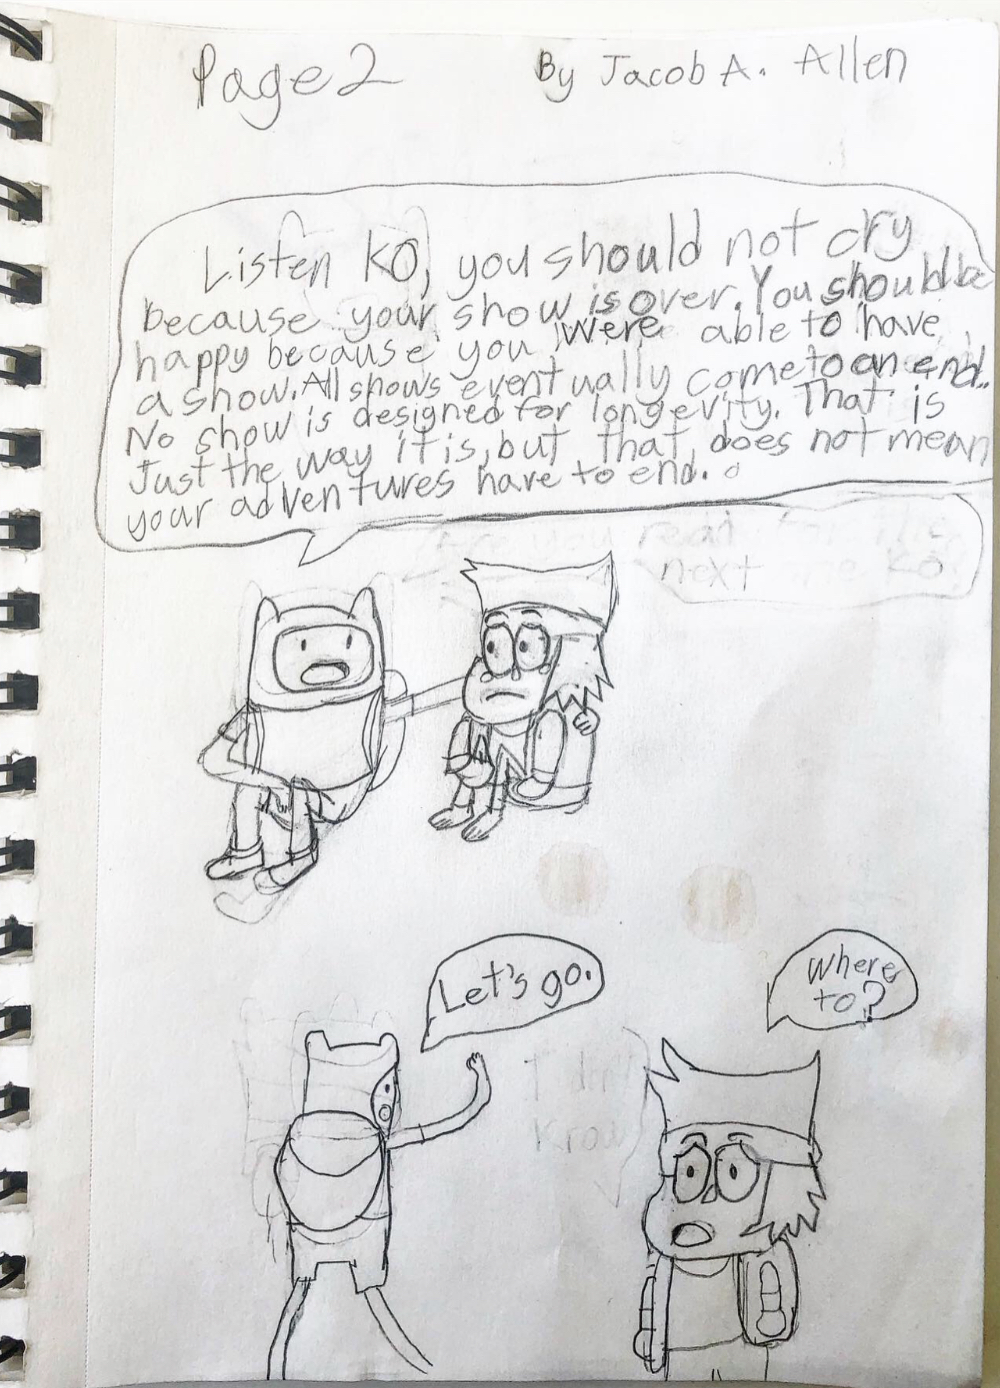 Page 2
By Jacob A. Allen
Listen KO, you should not cry
because your show is over. You should be
happy because you were able to have
a show. All shows eventually come to an end..
No show is designed for longevity. That is
Just the way it is, but that does not mean
your adventures have to end.
Are you read
next one KO?
Let's go.
Where
to?